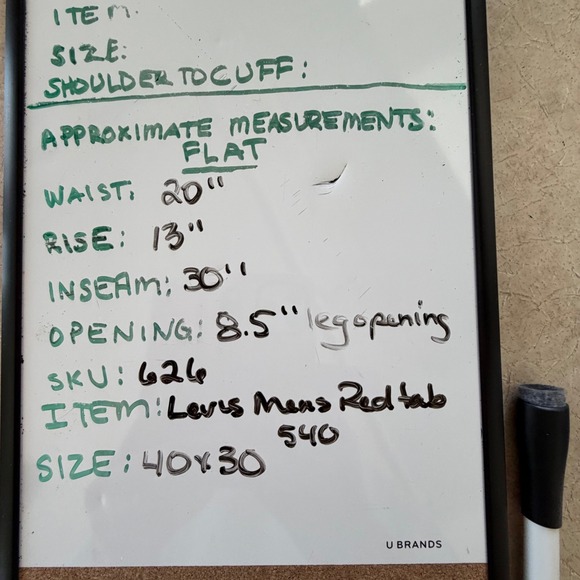 ITEM:
SIZE:
SHOULDER TO CUFF:
APPROXIMATE MEASUREMENTS:
FLAT
WAIST: 20"
RISE: 13"
INSEAM: 30"
OPENING: 8.5" leg opening
SKU: 626
ITEM: Levis Mens Red tab
540
SIZE: 40x30
U BRANDS